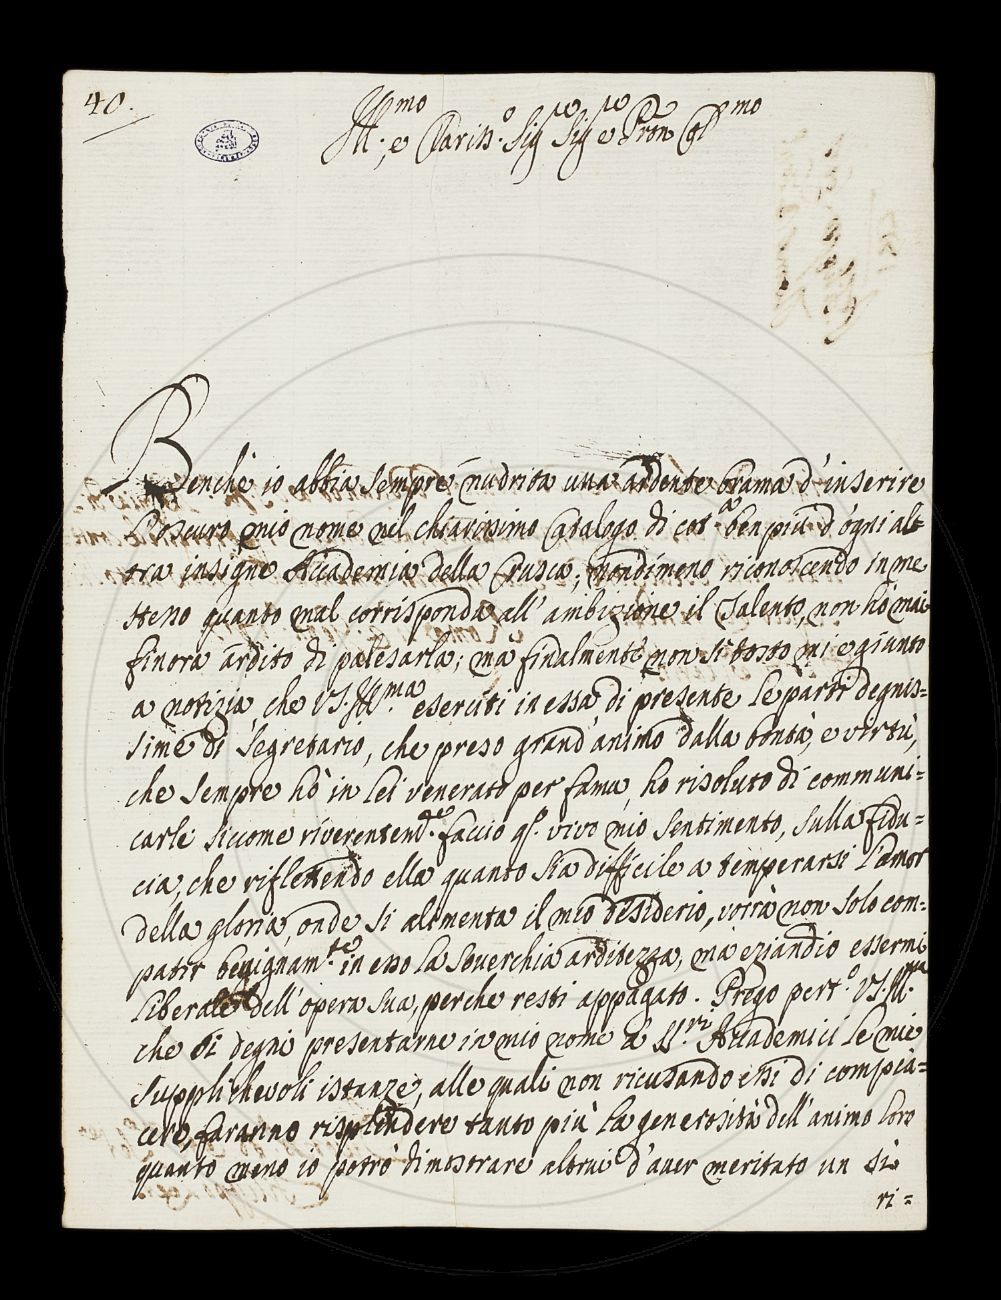 40.
Ill.mo, e Clariss.o Sig.re Sig.re e Pron Col.mo
Benchè io abbia sempre nudrita una ardente brama d'inserire
l'oscuro mio nome nel chiarissimo Catalogo di cot.a ben più d'ogni al=
tra insigne Accademia della Crusca; nondimeno riconoscendo in me
stesso quanto mal corrisponda all'ambizione il Talento, non hò mai
finora ardito di palesarla; mà finalmente non sì tosto mi è giunto
a notizia, che VS. Ill.ma eserciti in essa di presente le parti degnis=
sime di Segretario, che preso grand'animo dalla bontà, e virtù,
che sempre hò in lei venerato per fama, ho risoluto di communi=
carle siccome riverentem.te faccio q.o vivo mio sentimento, sulla fidu=
cia, che riflettendo ella quanto sia difficile a temperarsi l'amor
della gloria, onde si alimenta il mio desiderio, vorrà non solo com=
patir benignam.te in esso la soverchia arditezza, mà eziandio essermi
liberale dell'opera sua, perche resti appagato. Prego pert.o VS. Ill.ma
che si degni presentarne in mio nome à SS.ri Accademici le mie
supplichevoli istanze, alle quali non ricusando essi di compia=
cere, faranno risplendere tanto più la generosità dell'animo loro
quanto meno io potrò dimostrare altrui d'aver meritato un sì
ri=